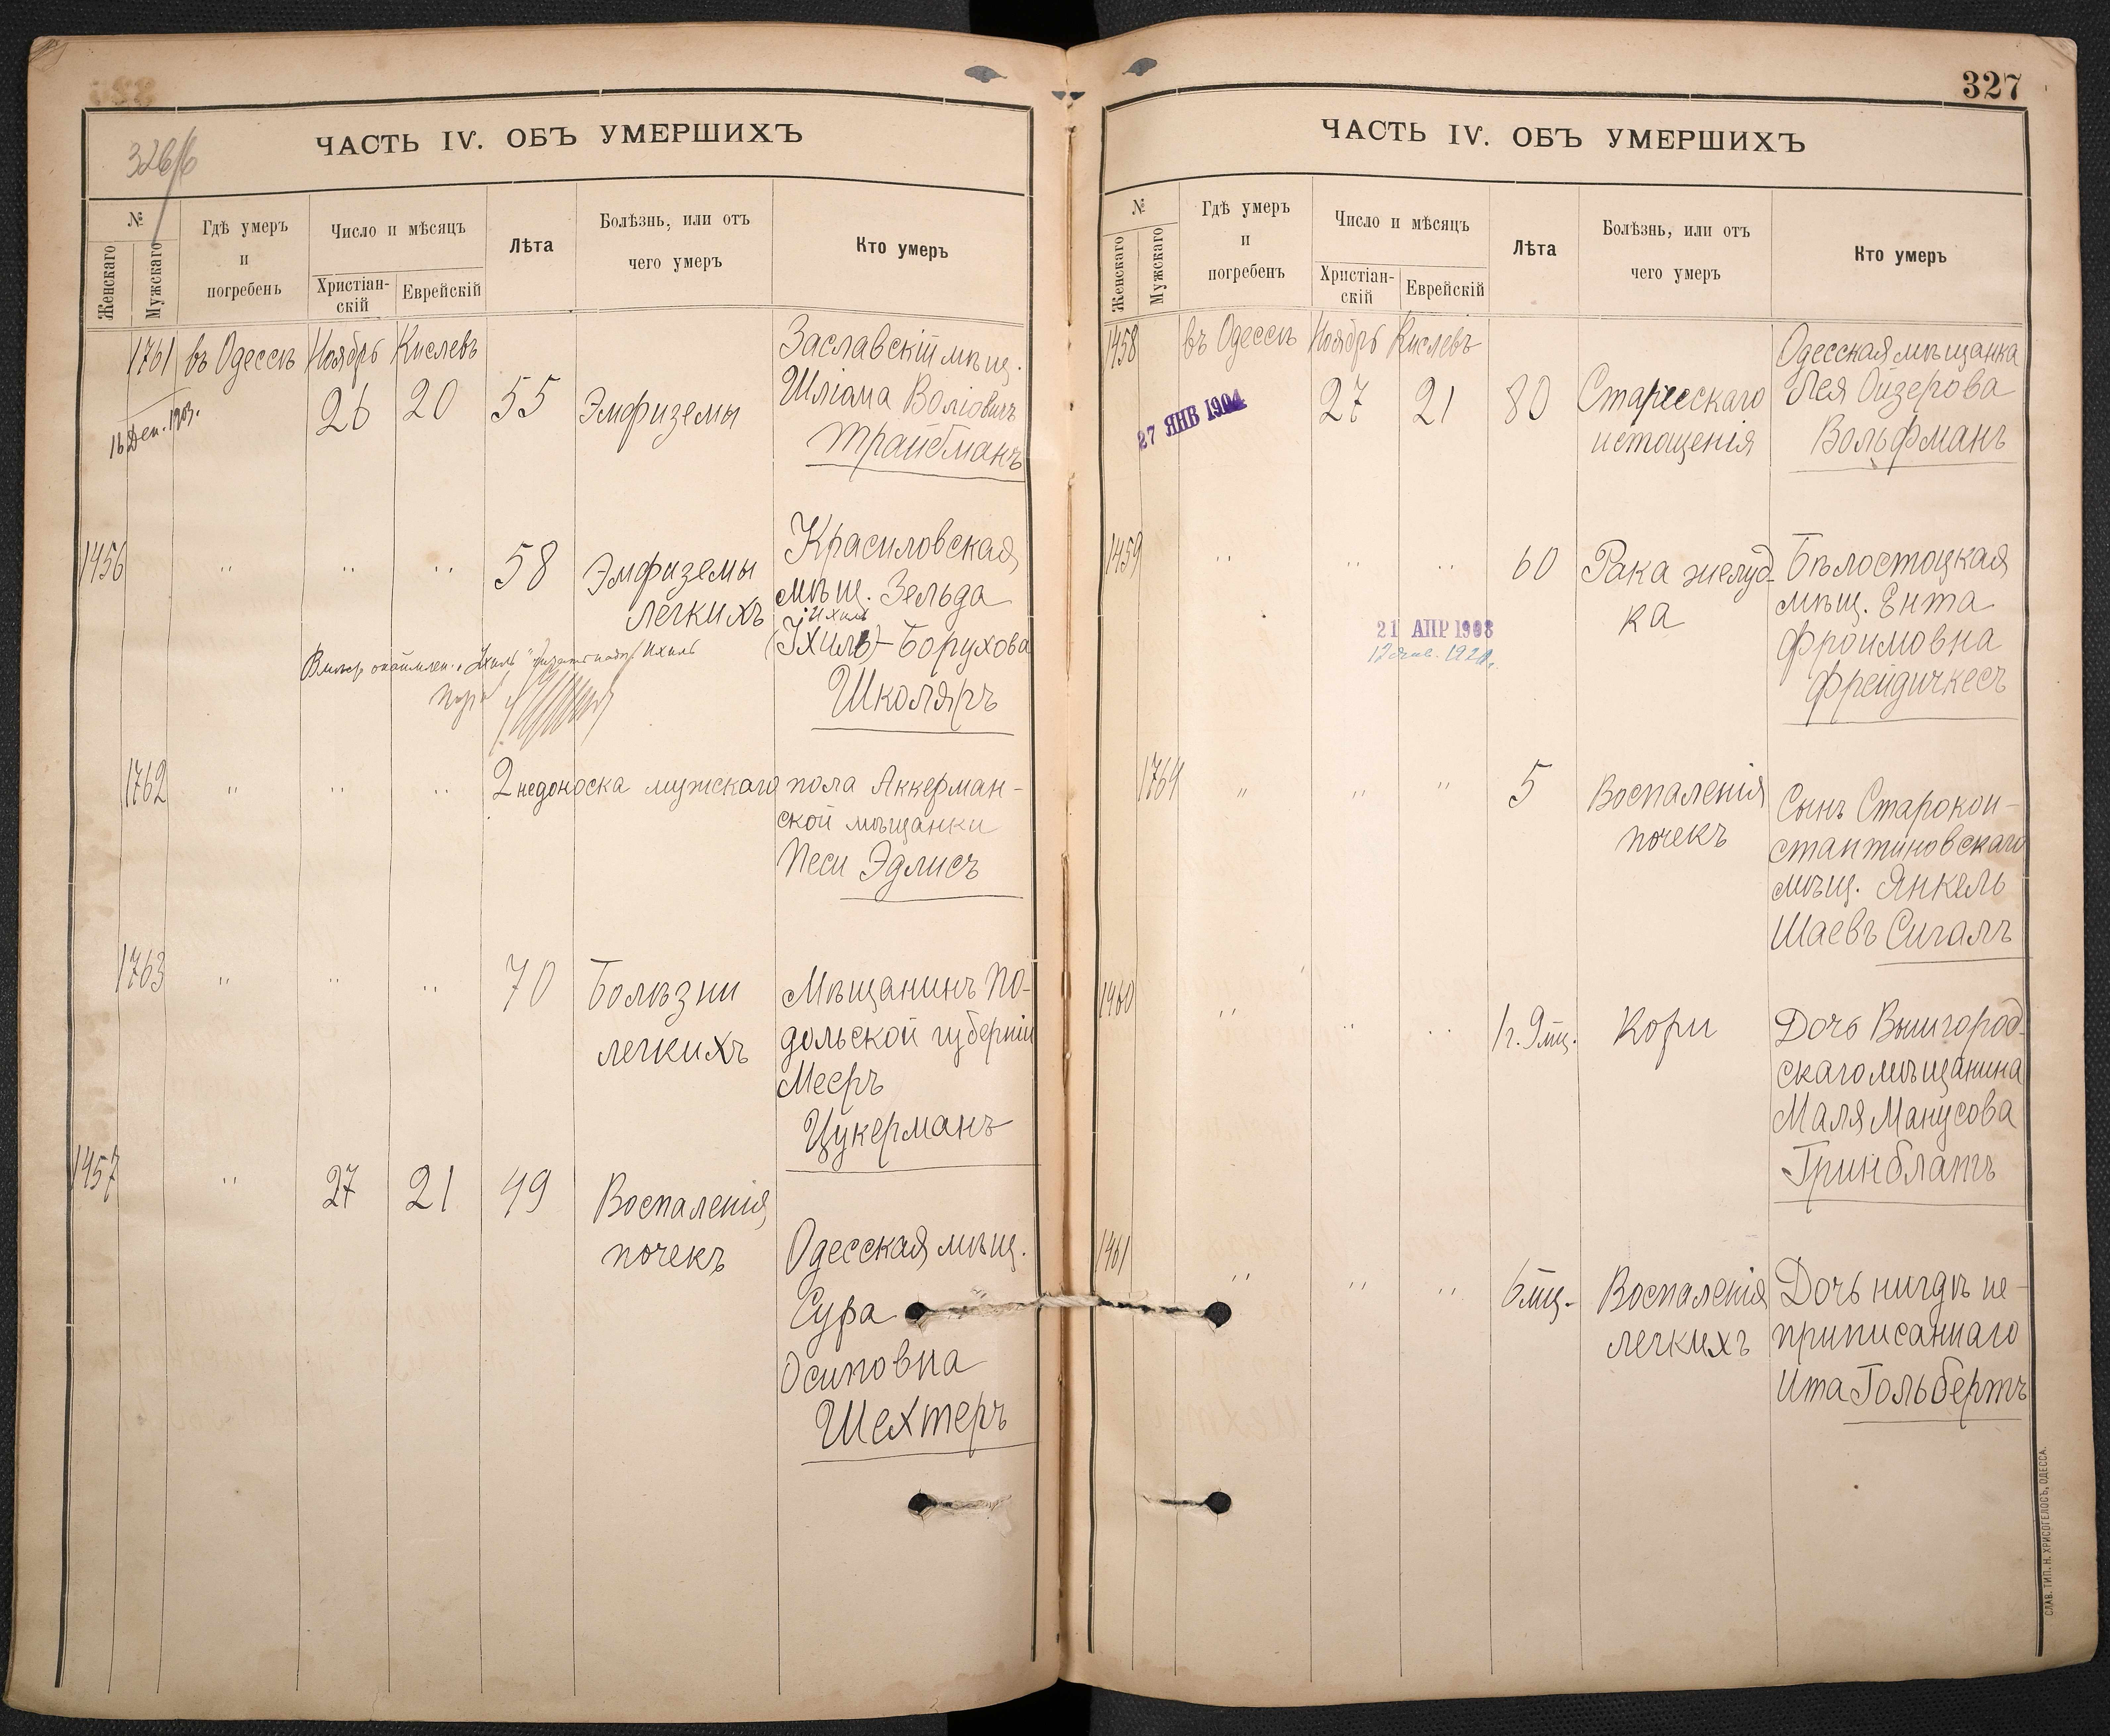 326/б
ЧАСТЬ IV. ОБЪ УМЕРШИХЪ
№
Женскаго
Мужскаго
Гдѣ умеръ
и
погребенъ
Число и мѣсяцъ
Христіан-
скій
Еврейскій
Лѣта
Болѣзнь, или отъ
чего умеръ
Кто умеръ
1761 въ Одессѣ Ноябрь Кислевъ
26 20 55 Эмфиземы
Заславскій мѣщ.
Шліома Воліовичъ
Трайбманъ
16 Дек. 1903.
1456 " " " 58 Эмфиземы
легкихъ
Красиловская
мѣщ. Зельда
Ихиль
(Ихиль)-Борухова
Школяръ
Ихиль
1762 " " " 2 недоноска мужскаго пола Аккерман-
ской мѣщанки
Песи Эдлисъ
1763 " " " 70 Болѣзни
легкихъ
Мѣщанинъ По-
дольской губерніи
Мееръ
Цукерманъ
1457 " 27 21 49 Воспаленія
почекъ
Одесская мѣщ.
Сура
Осиповна
Шехтеръ
327
ЧАСТЬ IV. ОБЪ УМЕРШИХЪ
№
Женскаго
Мужскаго
Гдѣ умеръ
и
погребенъ
Число и мѣсяцъ
Христіан-
скій
Еврейскій
Лѣта
Болѣзнь, или отъ
чего умеръ
Кто умеръ
1458 въ Одессѣ Ноябрь Кислевъ
27 21 80 Старческаго
истощенія
Одесская мѣщанка
Лея Ойзерова
Вольфманъ
27 ЯНВ 1904
1459 " " " 60 Рака желуд-
ка
Бѣлостоцкая
мѣщ. Ента
Фроимовна
Фрейдичкесъ
21 АПР 1908
1764 " " " 5 Воспаленія
почекъ
Сынъ Старокон-
стантиновскаго
мѣщ. Янкель
Шаевъ Сигалъ
1460 " " " 1 г. 9 мц. Кори
Дочь Вышгород-
скаго мѣщанина
Маля Манусова
Гринблатъ
1461 " " " 6 мц. Воспаленія
легкихъ
Дочь нигдѣ не-
приписаннаго
Ита Гольбертъ
СЛАВ. ТИП. Н. ХРИСОГЕЛОСЪ, ОДЕССА.